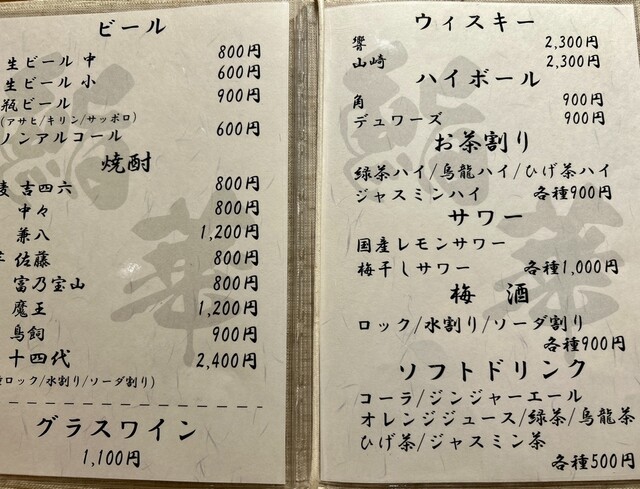 ビール
生ビール 中 800円
生ビール 小 600円
瓶ビール 900円
(アサヒ/キリン/サッポロ)
ノンアルコール 600円
焼酎
吉四六 800円
中々 800円
兼八 1,200円
佐藤 800円
富乃宝山 800円
魔王 1,200円
鳥飼 900円
十四代 2,400円
ロック/水割り/ソーダ割り)
グラスワイン
1,100円
ウィスキー
響 2,300円
山崎 2,300円
ハイボール
角 900円
デュワーズ 900円
お茶割り
緑茶ハイ/烏龍ハイ/ひげ茶ハイ
ジャスミンハイ 各種900円
サワー
国産レモンサワー
梅干しサワー 各種1,000円
梅 酒
ロック/水割り/ソーダ割り
各種900円
ソフトドリンク
コーラ/ジンジャーエール
オレンジジュース/緑茶/烏龍茶
ひげ茶/ジャスミン茶
各種500円